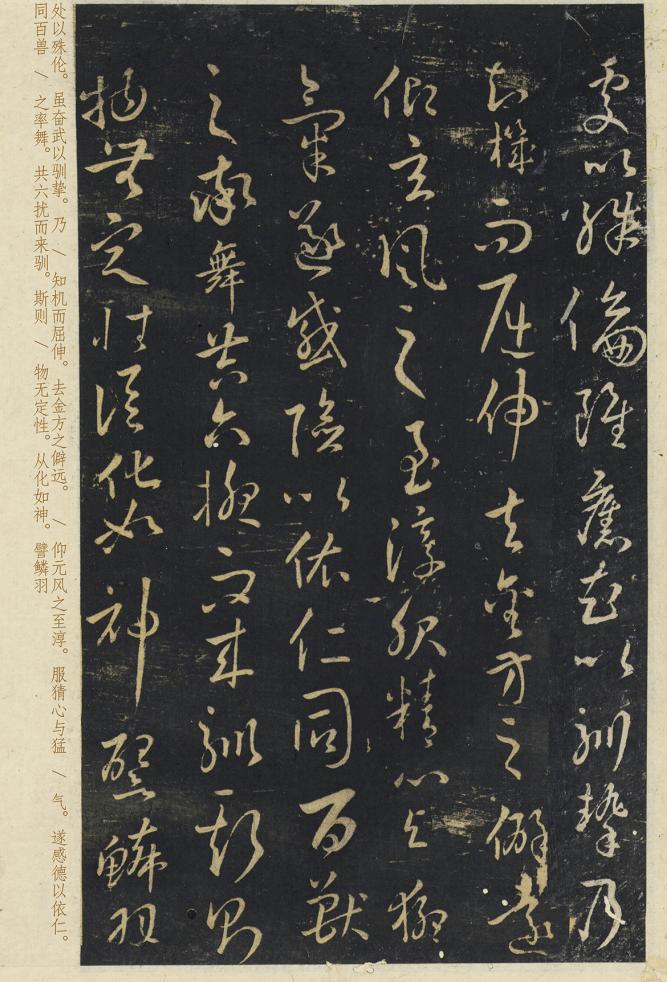 處以殊倫雖奮武以馴摯乃
知機而屈伸去金方之僻遠
仰玄風之至淳服猜心与猛
氣遂感德以依仁同百獸
之率舞共六擾而来馴斯則
物無定性從化如神譬鱗羽
处以殊伦。虽奋武以驯挚。乃 / 知机而屈伸。去金方之僻远。 / 仰元风之至淳。服猜心与猛 / 气。遂感德以依仁。
同百兽 / 之率舞。共六扰而来驯。斯则 / 物无定性。从化如神。譬鳞羽